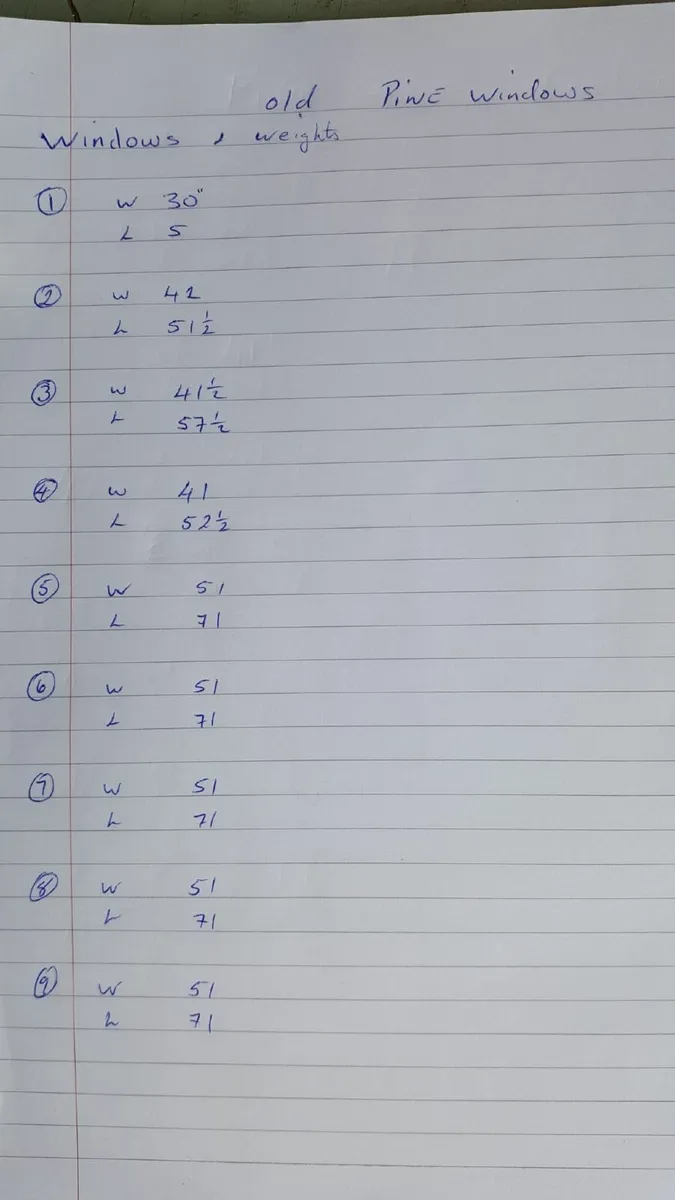 old Pine windows
Windows & weights
① W 30"
L 5
② W 42
L 51 ½
③ W 41 ½
L 57 ½
④ W 41
L 52 ½
⑤ W 51
L 71
⑥ W 51
L 71
⑦ W 51
L 71
⑧ W 51
L 71
⑨ W 51
L 71